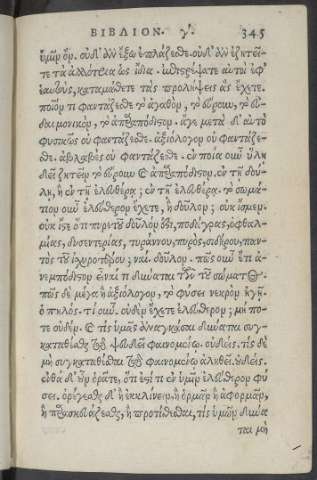 ΒΙΒΛΙΟΝ. γ. 345
ὑμῖν ὄν. οὐδ᾽ ἂν ἔξω ἐπλάζεσθε. οὐδ᾽ ἂν ἐζητεῖ-
τε τὰ ἀλλότρια ὡς ἴδια. ἐπιστρέψατε αὐτοὶ ἐφ᾽
ἑαυτούς, καταμάθετε τὰς προλήψεις ἃς ἔχετε.
ποῖόν τι φαντάζεσθε τὸ ἀγαθόν, τὸ εὔρουν, τὸ εὐ-
δαιμονικόν, τὸ ἀπαραπόδιστον. ἄγε μετὰ δ᾽ αὐτὸ
φυσικῶς οὐ φαντάζεσθε. ἀξιόλογον οὐ φαντάζε-
σθε. ἀβλαβὲς οὐ φαντάζεσθε. ἐν ποίᾳ οὖν ὕλῃ
δεῖ ζητεῖν τὸ εὔρουν καὶ ἀπαραπόδιστον. ἐν τῇ δού-
λῃ, ἢ ἐν τῇ ἐλευθέρᾳ; ἐν τῇ ἐλευθέρᾳ. τὸ σωμά-
τιον οὖν ἐλεύθερον ἔχετε, ἢ δοῦλον; οὐκ ἴσμεν.
οὐκ ἴστε ὅτι πυρετοῦ δοῦλόν ἐστι, ποδάγρας, ὀφθαλ-
μίας, δυσεντερίας, τυράννου, πυρός, σιδήρου, παν-
τὸς τοῦ ἰσχυροτέρου; ναί. δοῦλον. πῶς οὖν ἔτι ἀ-
νεμπόδιστον εἶναί τι δύναται τῶν τοῦ σώματος.
πῶς δὲ μέγα ἢ ἀξιόλογον, τὸ φύσει νεκρὸν ἡ γῆ.
ὁ πηλός. τί οὖν. οὐδὲν ἔχετε ἐλεύθερον; μή πο-
τε οὐδέν. καὶ τίς ὑμᾶς ἀναγκάσαι δύναται συγ-
καταθέσθαι τῷ ψευδεῖ φαινομένῳ. οὐδείς. τίς δὲ
μὴ συγκαταθέσθαι τῷ φαινομένῳ ἀληθεῖ. οὐδείς.
ἐνθάδ᾽ οὖν ὁρᾶτε, ὅτι ἔστι τι ἐν ὑμῖν ἐλεύθερον φύ
σει. ὀρέγεσθαι δ᾽ ἢ ἐκκλίνειν, ἢ ὁρμᾶν ἢ ἀφορμᾶν,
ἢ παρασκευάζεσθαι, ἢ προτίθεσθαι, τίς ὑμῶν δύνα
ται μὴ